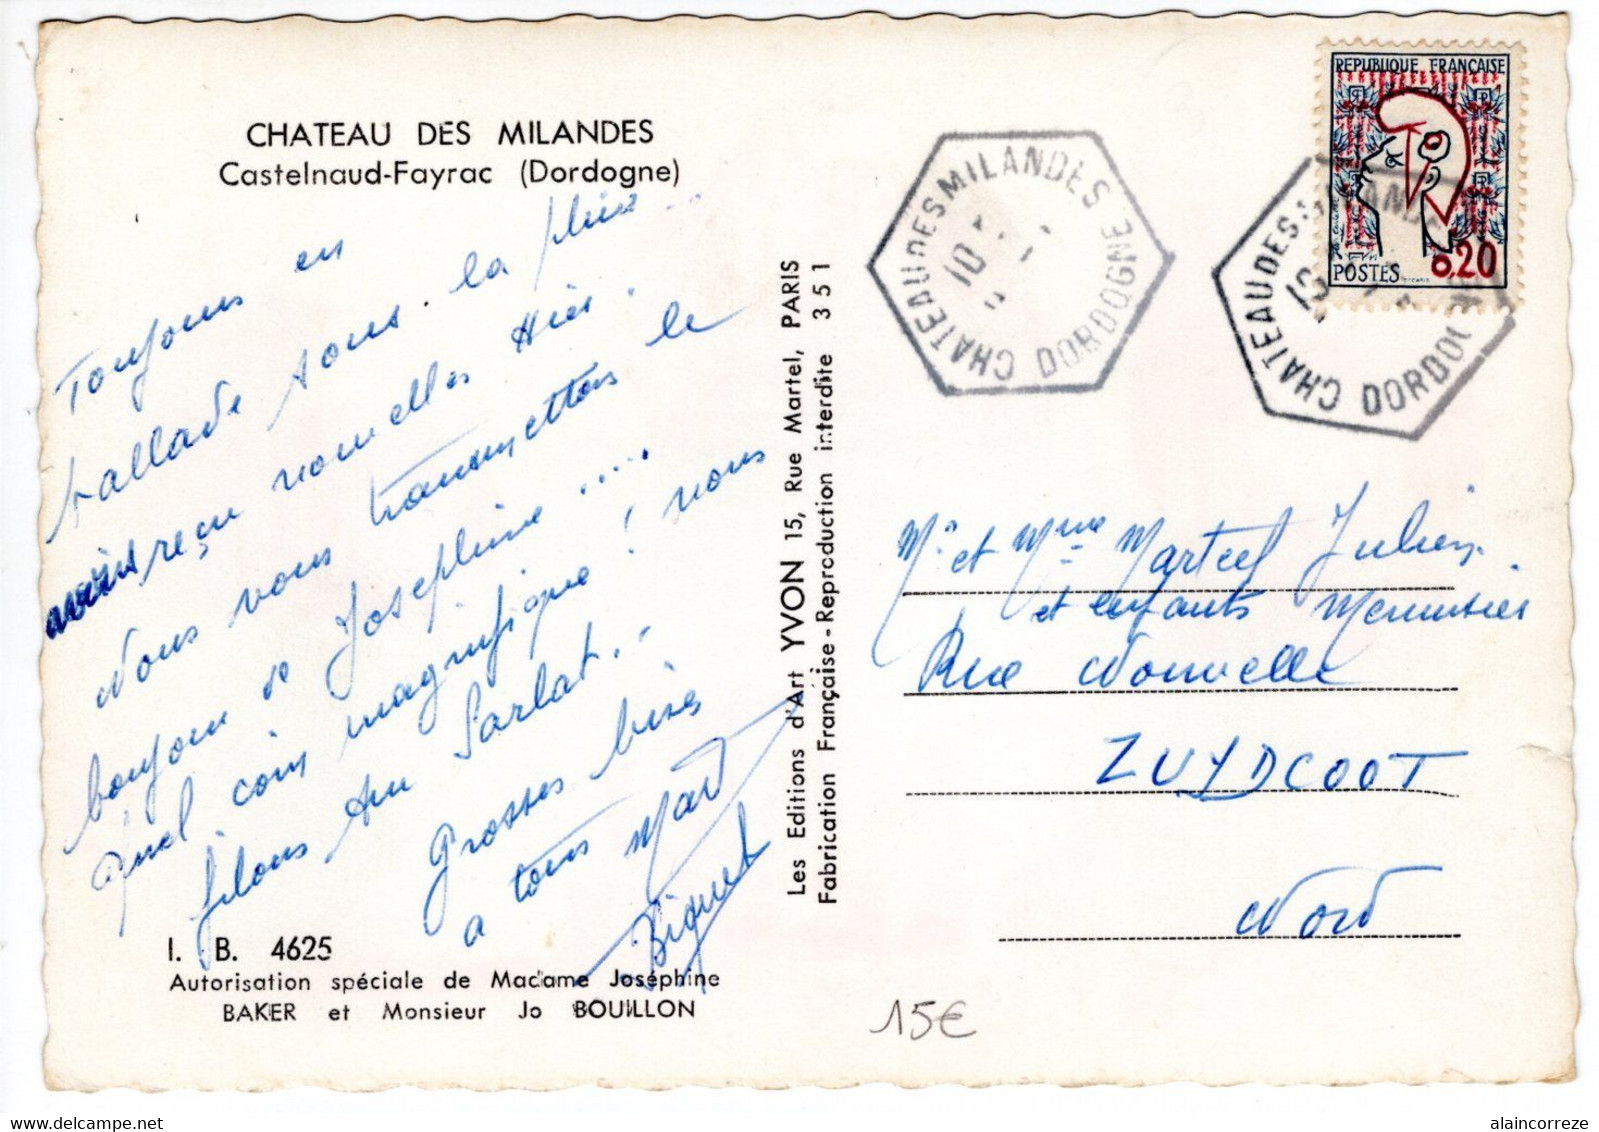 CHATEAU DES MILANDES
Castelnaud-Fayrac (Dordogne)
Toujours en
ballade sous la pluie...
avons reçu nouvelles Hier.
Nous vous transmettons le
bonjour de Joséphine ....
Quel coin magnifique ! nous
filons sur Sarlat.
Grosses bises
a tous
I. B. 4625
Autorisation spéciale de Madame Joséphine
BAKER et Monsieur Jo BOUILLON
Les Editions d'Art YVON 15, Rue Martel, PARIS
Fabrication Française - Reproduction interdite 351
CHATEAU DES MILANDES DORDOGNE
10
REPUBLIQUE FRANÇAISE
POSTES 0,20
CHATEAU DES
DORDOG
Mr et Mme Marcel Julien
et enfants Menuisier
Rue Nouvelle
ZUYDCOOT
Nord
15€
alaincorreze